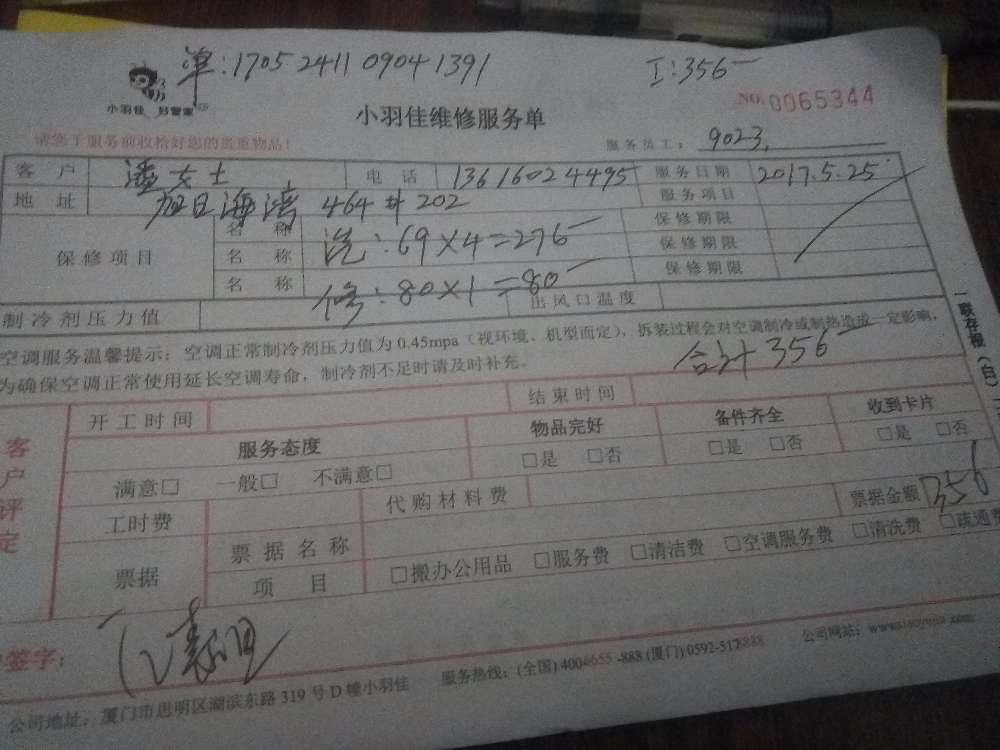 单:17052411 09041391
工:356
小羽佳 好管家
小羽佳维修服务单
NO. 0065344
请您于服务前收拾好您的贵重物品!
服务员工: 9023
客户 潘女士 电话 13616024495 服务日期 2017.5.25
地址 旭日海湾 464# 202 服务项目
保修项目 名称 洗:69×4=276 保修期限
名称 保修期限
名称 修:80×1=80 保修期限
制冷剂压力值 出风口温度
空调服务温馨提示:空调正常制冷剂压力值为 0.45mpa(视环境、机型而定),拆装过程会对空调制冷或制热造成一定影响,
为确保空调正常使用延长空调寿命,制冷剂不足时请及时补充。
合计 356
一联存根(白)
客户评定
开工时间 结束时间
服务态度 物品完好 备件齐全 收到卡片
满意□ 一般□ 不满意□ □是 □否 □是 □否 □是 □否
工时费 代购材料费 票据金额 356
票据 票据名称
项目 □搬办公用品 □服务费 □清洁费 □空调服务费 □清洗费 □疏通费
签字:
公司地址:厦门市思明区湖滨东路 319 号 D 幢小羽佳 服务热线:(全国) 4006655 -888 (厦门) 0592-5178888 公司网站:www.xiaoyujia.com